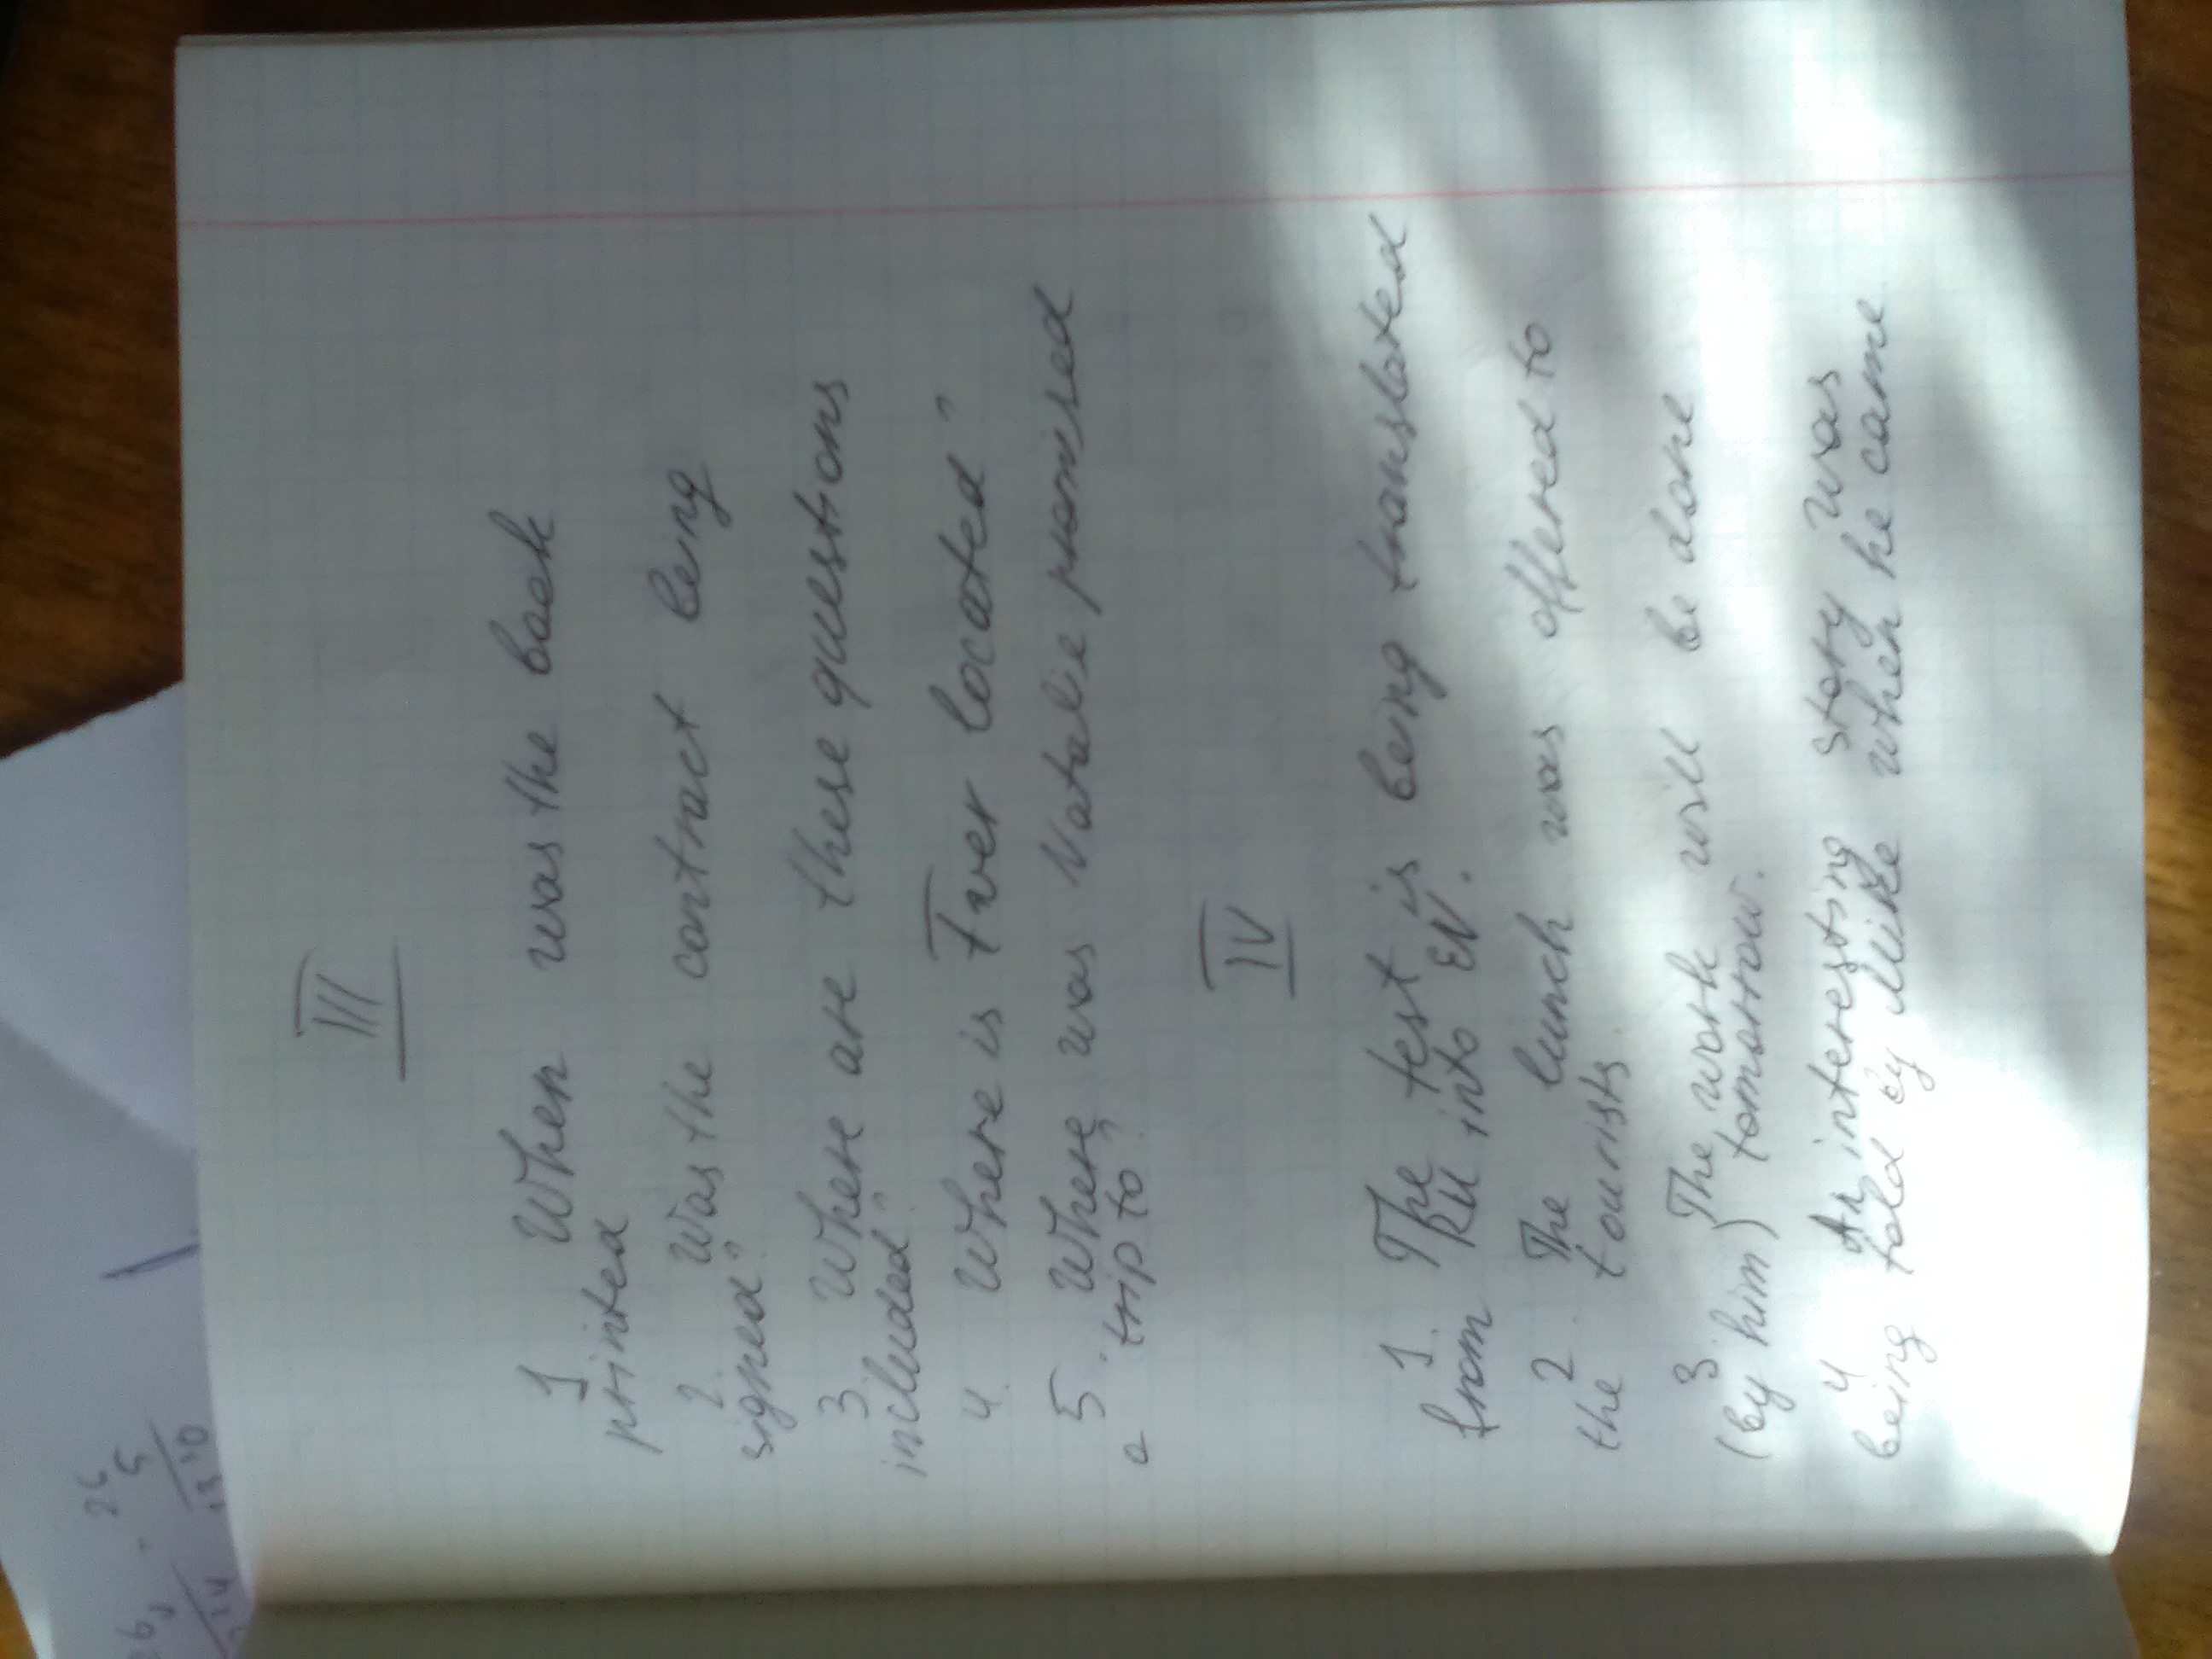 III
1 When was the book
printed
2. Was the contract being
signed?
3. Where are these questions
included?
4. Where is Tver located?
5. Where was Natalie promised
a trip to?
IV
1. The test is being translated
from RU into EN.
2. The lunch was offered to
the tourists.
3. The work will be done
(by him) tomorrow.
4 An interesting story was
being told by Mike when he came
26
5
1340